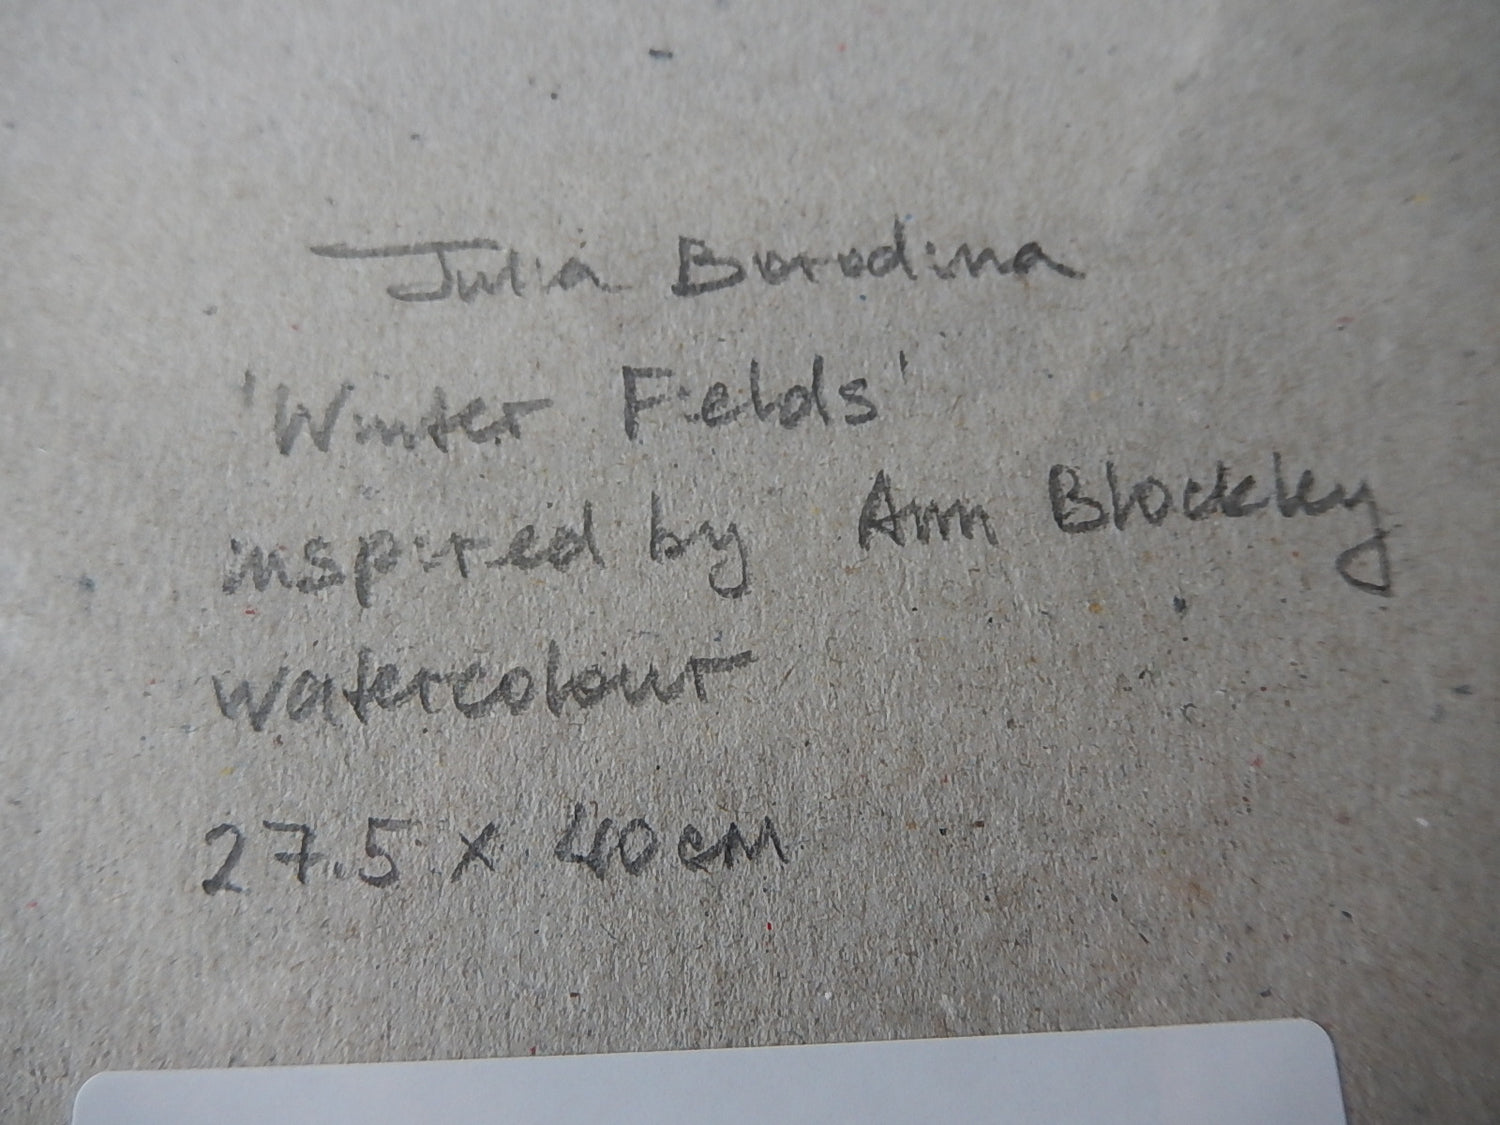 Julia Borodina
'Winter Fields'
inspired by Ann Blockley
watercolour
27.5 x 40 cm